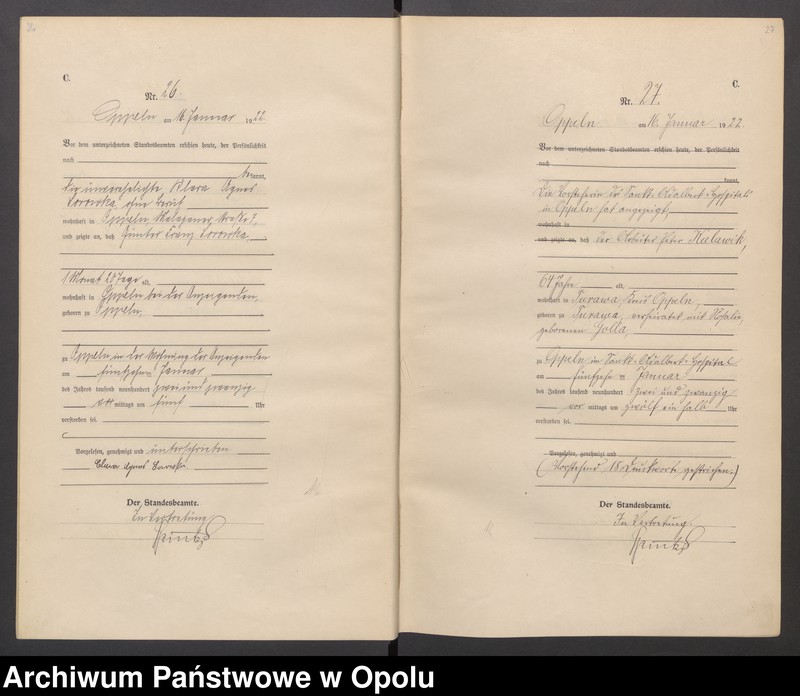 C.
Nr. 26.
Oppeln am 16. Januar 1922
Vor dem unterzeichneten Standesbeamten erschien heute, der Persönlichkeit
nach
bekannt,
die unverehelichte Klara Agnes
ohne Beruf
wohnhaft in Oppeln, Malapaner Straße 7,
und zeigte an, daß Günter Franz
1 Monat Tage alt,
wohnhaft in Oppeln bei der Anzeigenden,
geboren zu Oppeln,
zu Oppeln, in der Wohnung der Anzeigenden
am fünfzehnten Januar
des Jahres tausend neunhundert zwei und zwanzig
mittags um fünf Uhr
verstorben sei.
Vorgelesen, genehmigt und unterschrieben
Agnes
Der Standesbeamte.
In Vertretung
27
C.
Nr. 27.
Oppeln am 16. Januar 1922
Vor dem unterzeichneten Standesbeamten erschien heute, der Persönlichkeit
nach
kannt,
Die Vorsteherin des Sankt Adalbert-Hospitals
in Oppeln hat angezeigt,
wohnhaft in
und zeigte an, daß der Arbeiter Peter Kulawik,
64 Jahre alt,
wohnhaft in Turawa, Kreis Oppeln,
geboren zu Turawa, verheiratet mit Rosalie,
geborenen Jolla,
zu Oppeln, im Sankt Adalbert-Hospital
am fünfzehnten Januar
des Jahres tausend neunhundert zwei und zwanzig
vor mittags um zwölf ein halb Uhr
verstorben sei.
Vorgelesen, genehmigt und
(Vorstehend 18 Druckworte gestrichen.)
Der Standesbeamte.
In Vertretung.
Archiwum Państwowe w Opolu